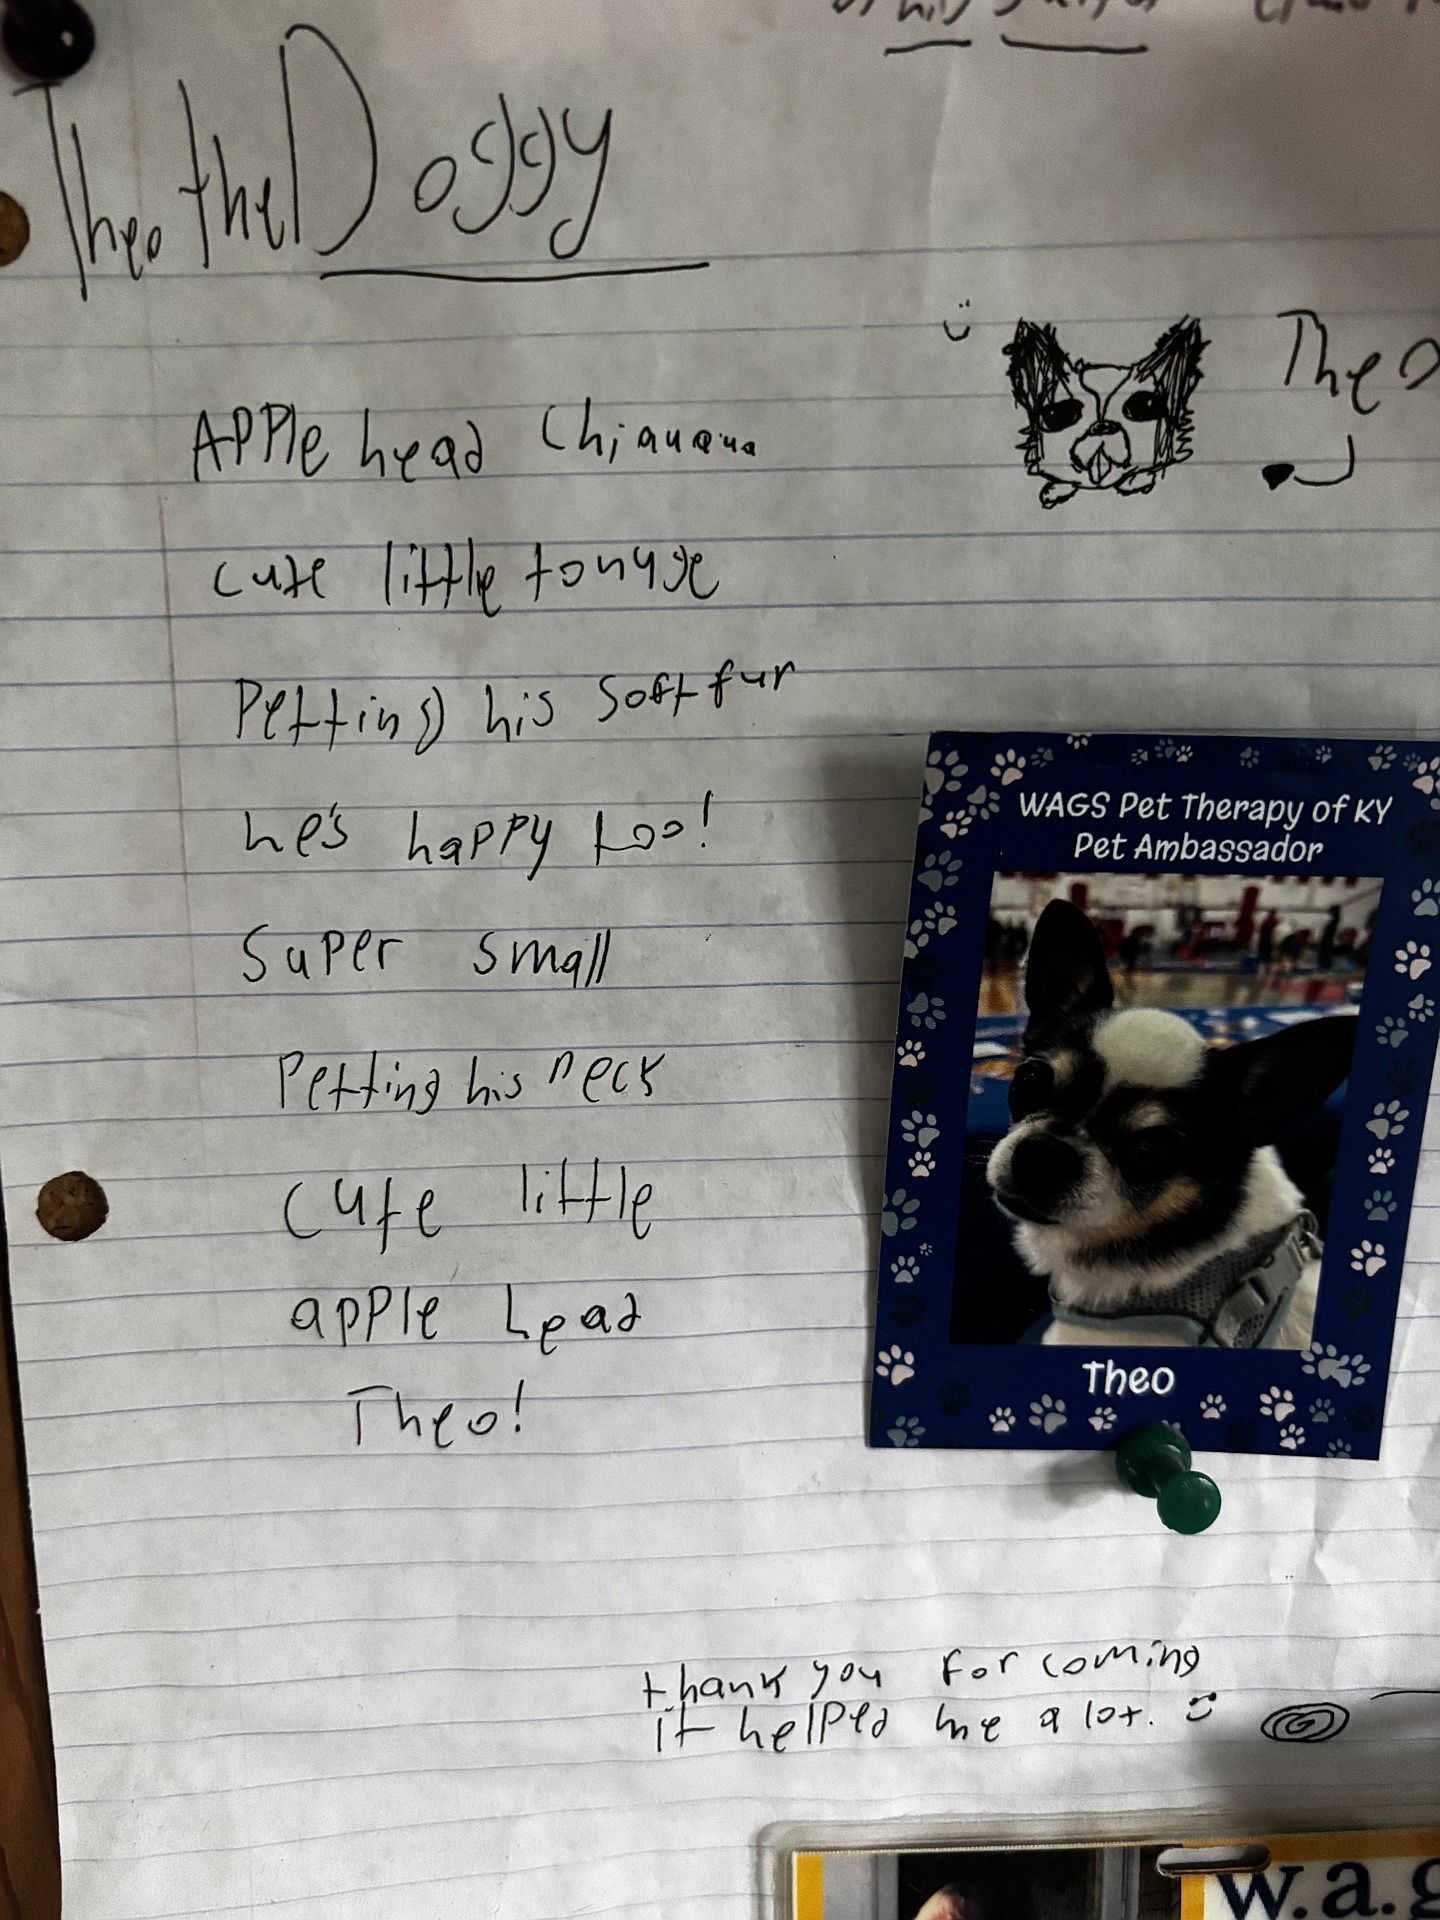 Theo the Doggy
Theo
APPle head Chiauaua
cute little tonuge
Petting his soft fur
he's happy too!
Super small
Petting his neck
cute little
apple head
Theo!
WAGS Pet Therapy of KY
Pet Ambassador
Theo
thank you for coming
it helped me a lot.
w.a.g